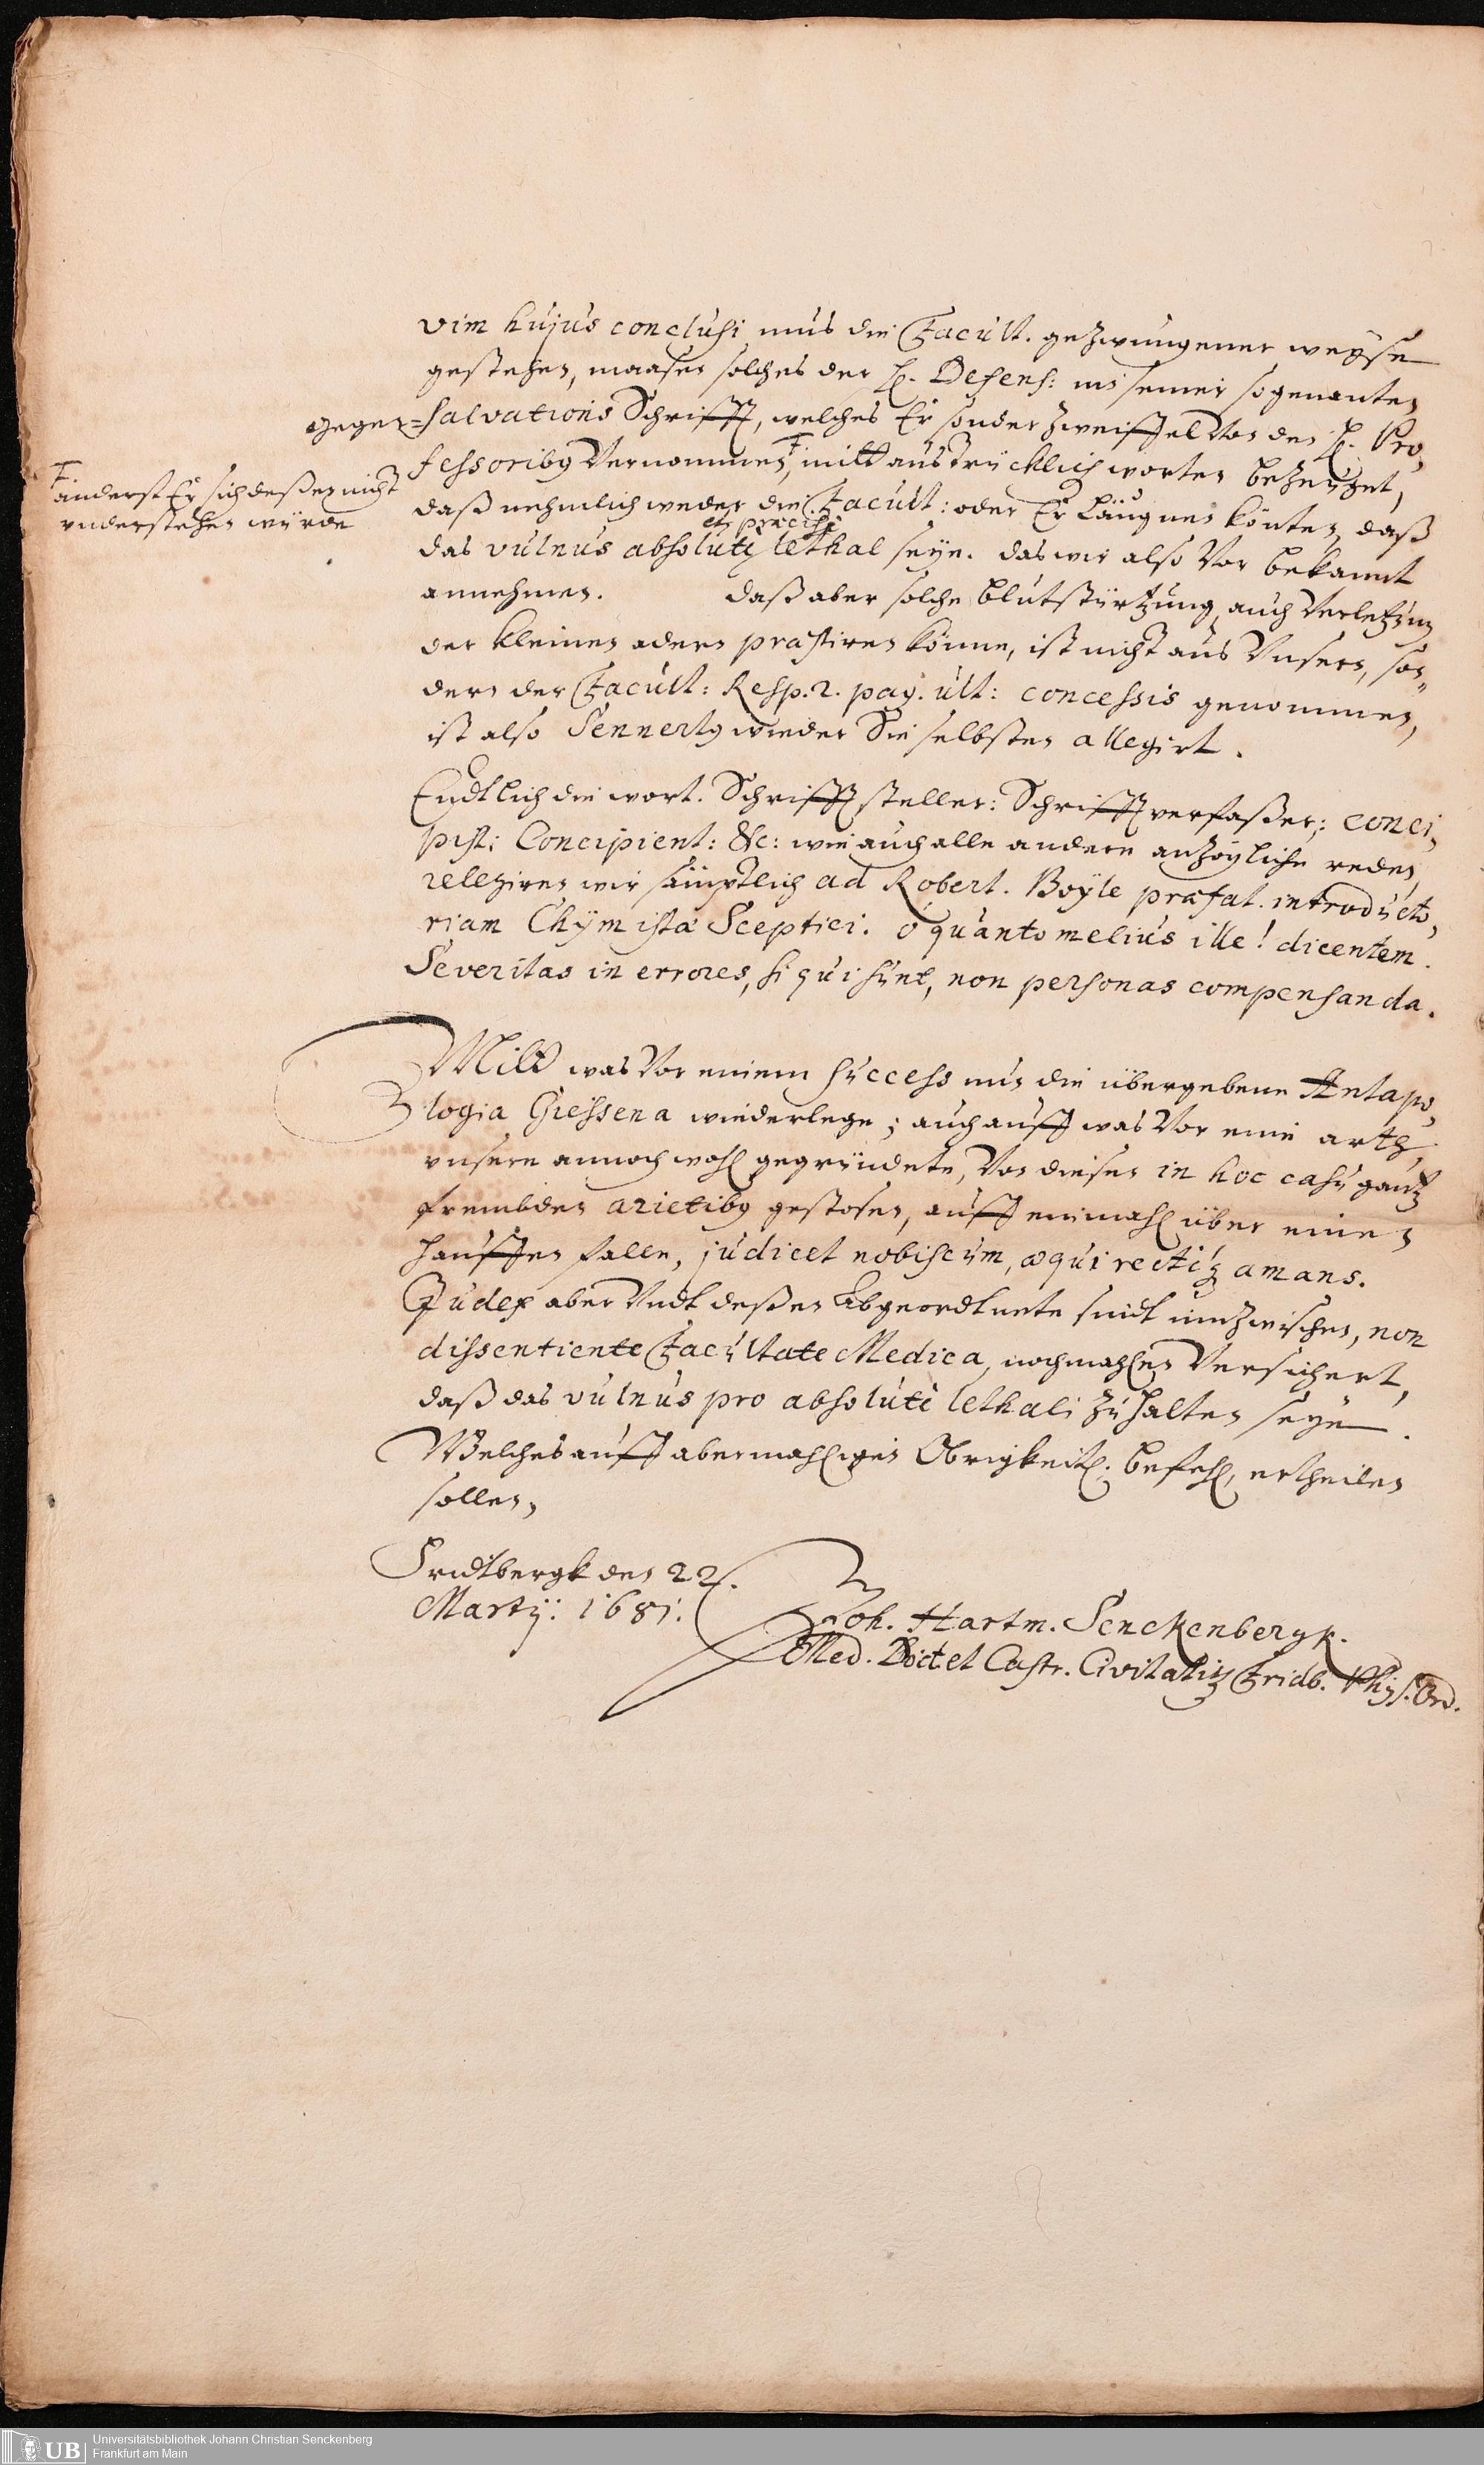 vim hujus conclusi mus die Facult. gezwungener weyse
gestehen, maasen solches der H. Defens: in seiner sogenanten
gegen=salvations Schrifft, welches Er sonder zweiffel von den H. Pro,
fessoribg vernommen, mitt austrücklich worten bezeuget,
Ŧ
anderst Er sich deßen nicht
understehen würde
daß nehmlich weder die Facult: oder Er läugnen könten, daß
et præcisè
das vulnus absolutè lethal seye. das wir also vor bekannt
annehmen. daß aber solche blutstürtzung auch verletzung
der kleinen adern præstiren könne, ist nicht aus unsern, son„
dern der Facult: Resp. 2. pag. ult: concessis genommen,
ist also Sennertg wieder Sie selbsten allegirt.
Endtlich die wort. Schrifftsteller: Schrifftverfaßer; conci,
pist; Concipient: &c: wie auch alle andere anzögliche reden,
relegiren wir sämptlich ad Robert. Boyle præfat. introducto,
riam Chymistæ Sceptici. o quanto melius ille! dicentem.
Severitas in errores, si qui sunt, non personas compensanda.
Mitt was vor einem success nun die übergebene Antapo,
logia Giessena wiederlege; auch auff was vor eine arth
unsere annoch wohl gegründete, von diesen in hoc casu gantz
frembden arietibg gestosen, auff einmahl über einen
hauffen falle, judicet nobiscum, æqui rectiq amans.
Judex aber undt deßen Abgeordtnete sindt inzwischen, non
dissentiente Facultate Medica, nochmahlen versichert,
daß das vulnus pro absolutè lethali zu halten seye.
Welches auff abermahligen Obrigkeitl. befehl, ertheilen
sollen,
Fridtbergk den 22.
Martij. 1681.
Joh. Hartm. Senckenbergk.
Med. Doct et Castr. Civitatiq Fridb. Phys. Ord.
UB
Universitätsbibliothek Johann Christian Senckenberg
Frankfurt am Main